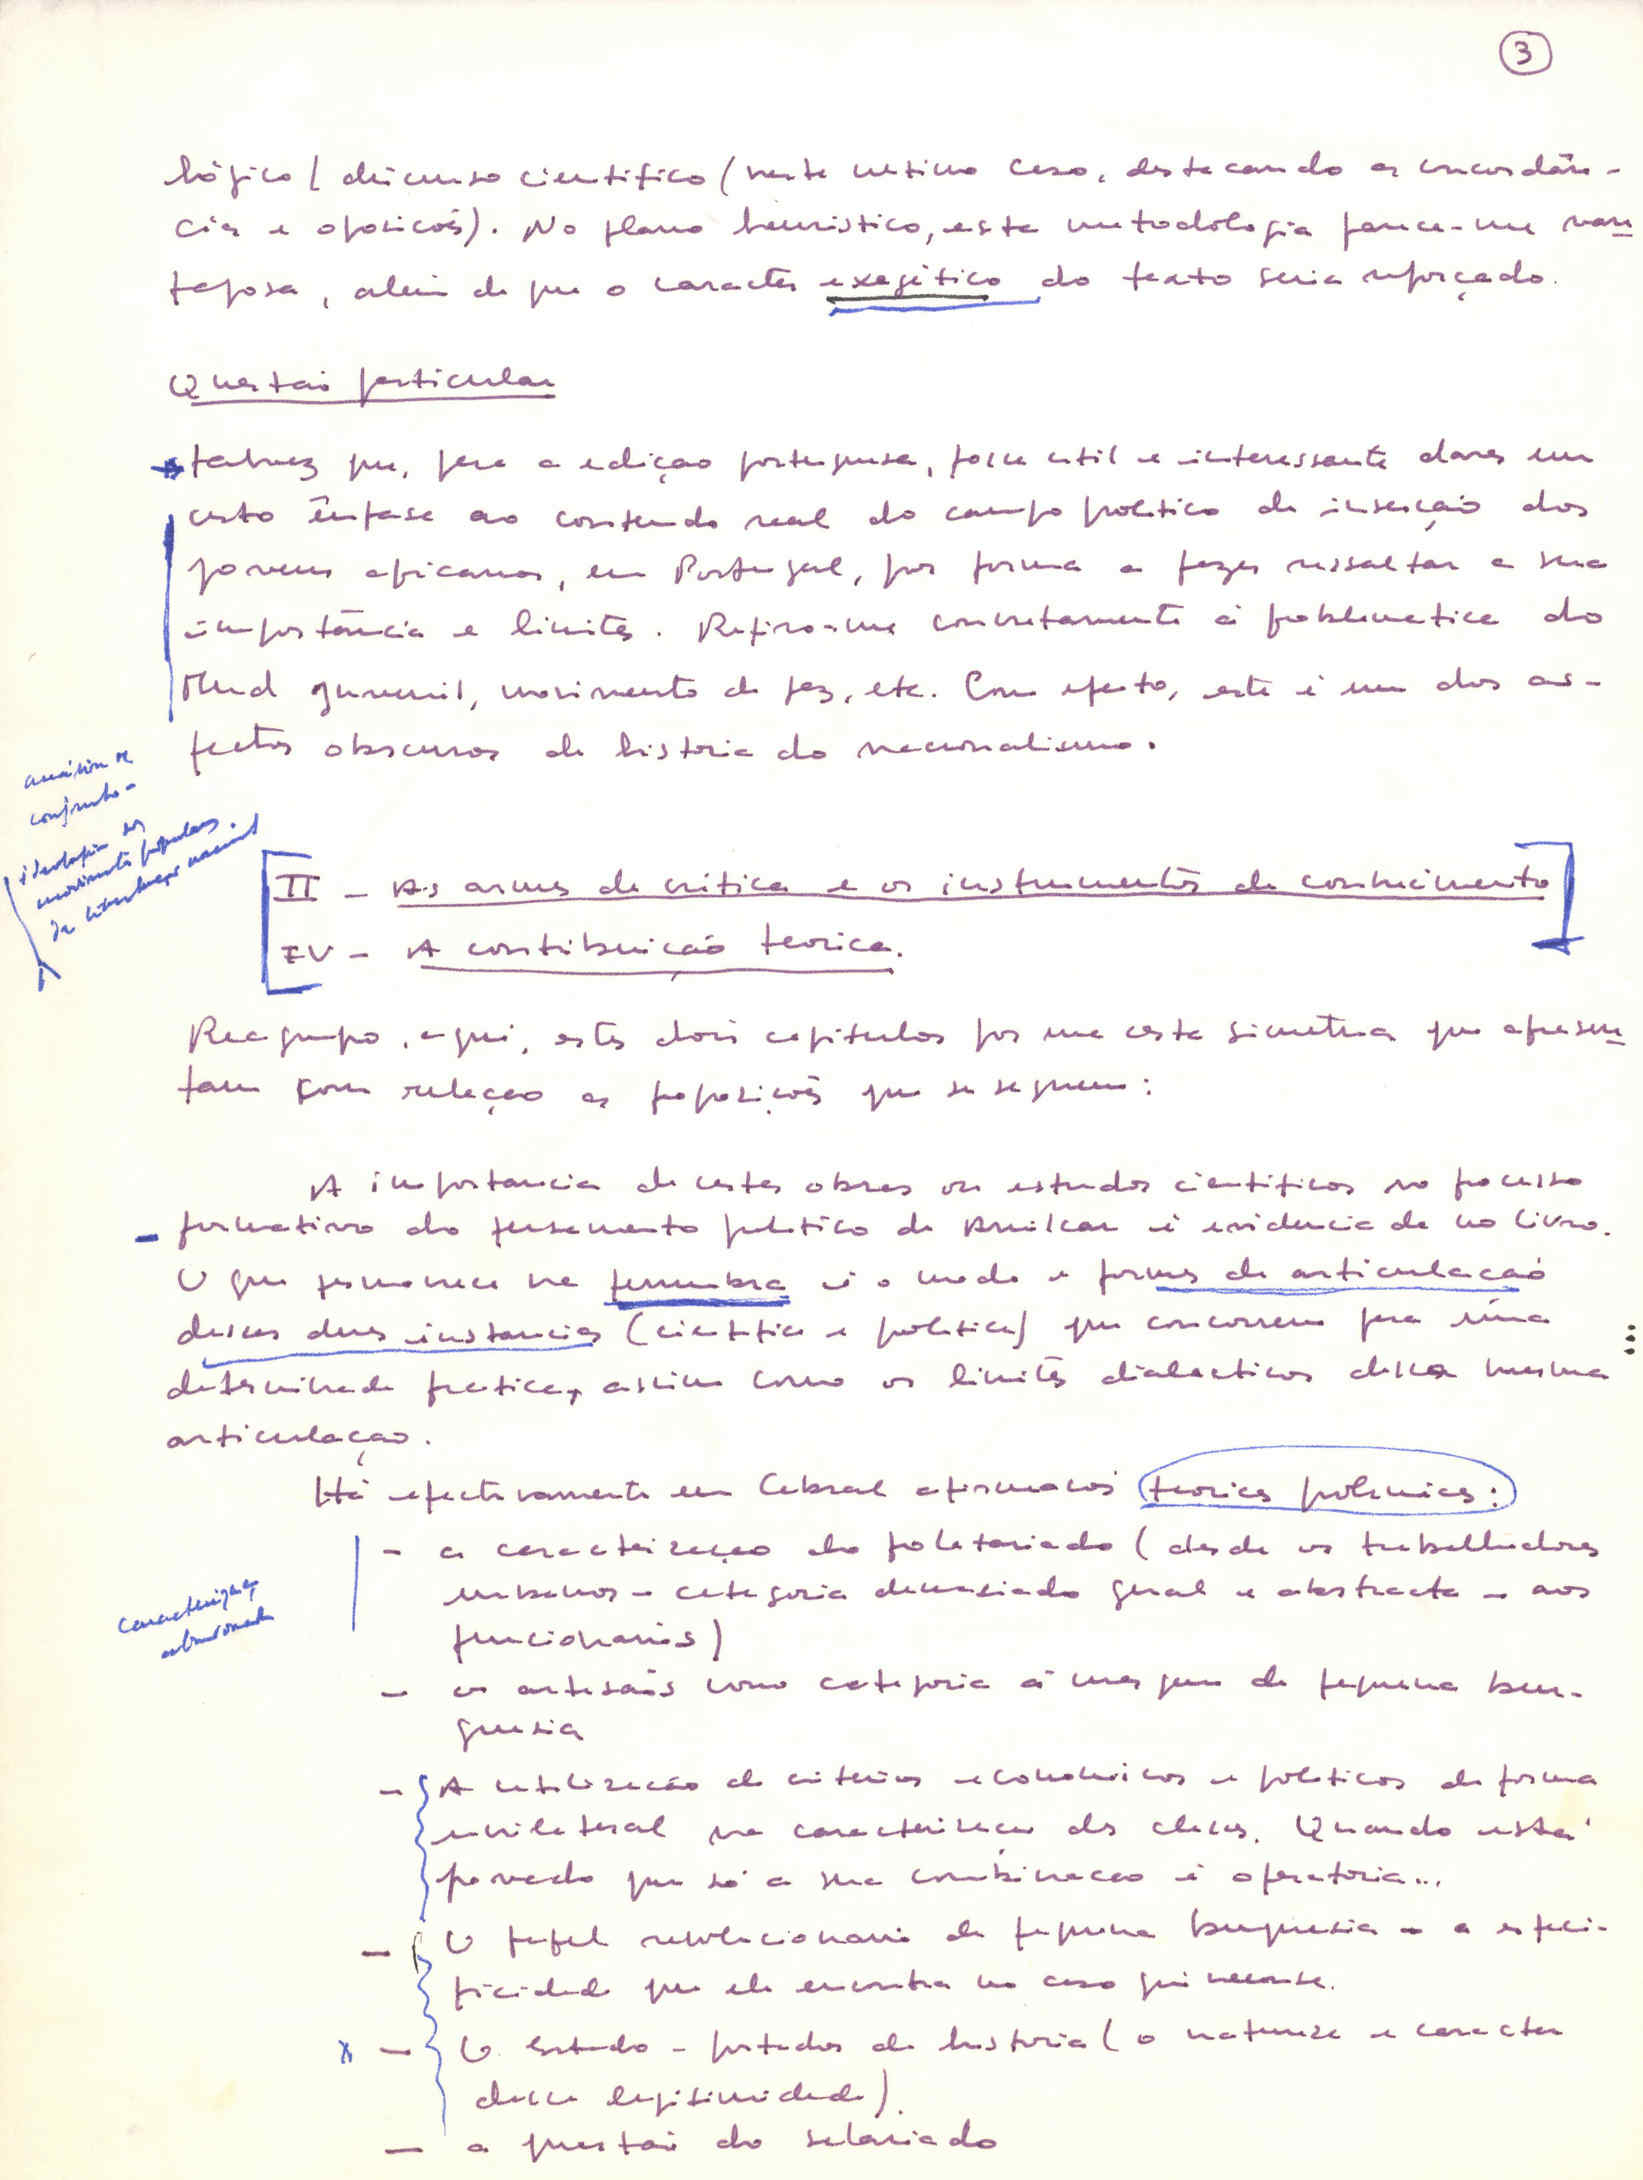 3
lógico / discurso científico (neste último caso, destacando as concordân-
cias e oposições). No plano heurístico, esta metodologia parece-me van
tajosa, além de que o caracter exegético do texto seria reforçado.
Questão particular
talvez que, para a edição portuguesa, fosse util e interessante dares um
certo ênfase ao conteudo real do campo politico de inserção dos
jovens africanos, em Portugal, por forma a fazer ressaltar a sua
importância e limites. Refiro-me concretamente à problematica do
Mud Juvenil, movimento da paz, etc. Com efeito, este é um dos as-
pectos obscuros da historia do nacionalismo.
conjunto -
ideologia dos
movimentos populares
de libertação nacional
II - As armas da critica e os instrumentos de conhecimento
IV - A contribuição teorica.
Reagrupo, aqui, estes dois capitulos por uma certa simetria que apresen
tam com relação as proposições que se seguem:
A importancia de certas obras ou estudos cientificos no processo
formativo do pensamento politico de Amilcar é evidenciada no livro.
O que permanece na penumbra é o modo e formas de articulação
dessas duas instancias (cientifica e politica) que concorrem para uma
determinada pratica, assim como os limites dialecticos dessa mesma
articulação.
Há efectivamente em Cabral afirmacões teoricas polemicas:
- a caracterização do proletariado (desde os trabalhadores
urbanos - categoria demasiado geral e abstracta - aos
funcionarios)
caracterização
- os artesãos como categoria à margem da pequena bur-
guesia
- A utilização de criterios economicos e politicos de forma
unilateral na caracterização das classes. Quando está
provado que só a sua combinacao é operatoria...
- O papel revolucionario da pequena burguesia - a especi-
ficidade que ela encontra no caso guineense.
x - O Estado - portador da historia (o natureza e caracter
dessa legitimidade).
- a questão do salariado